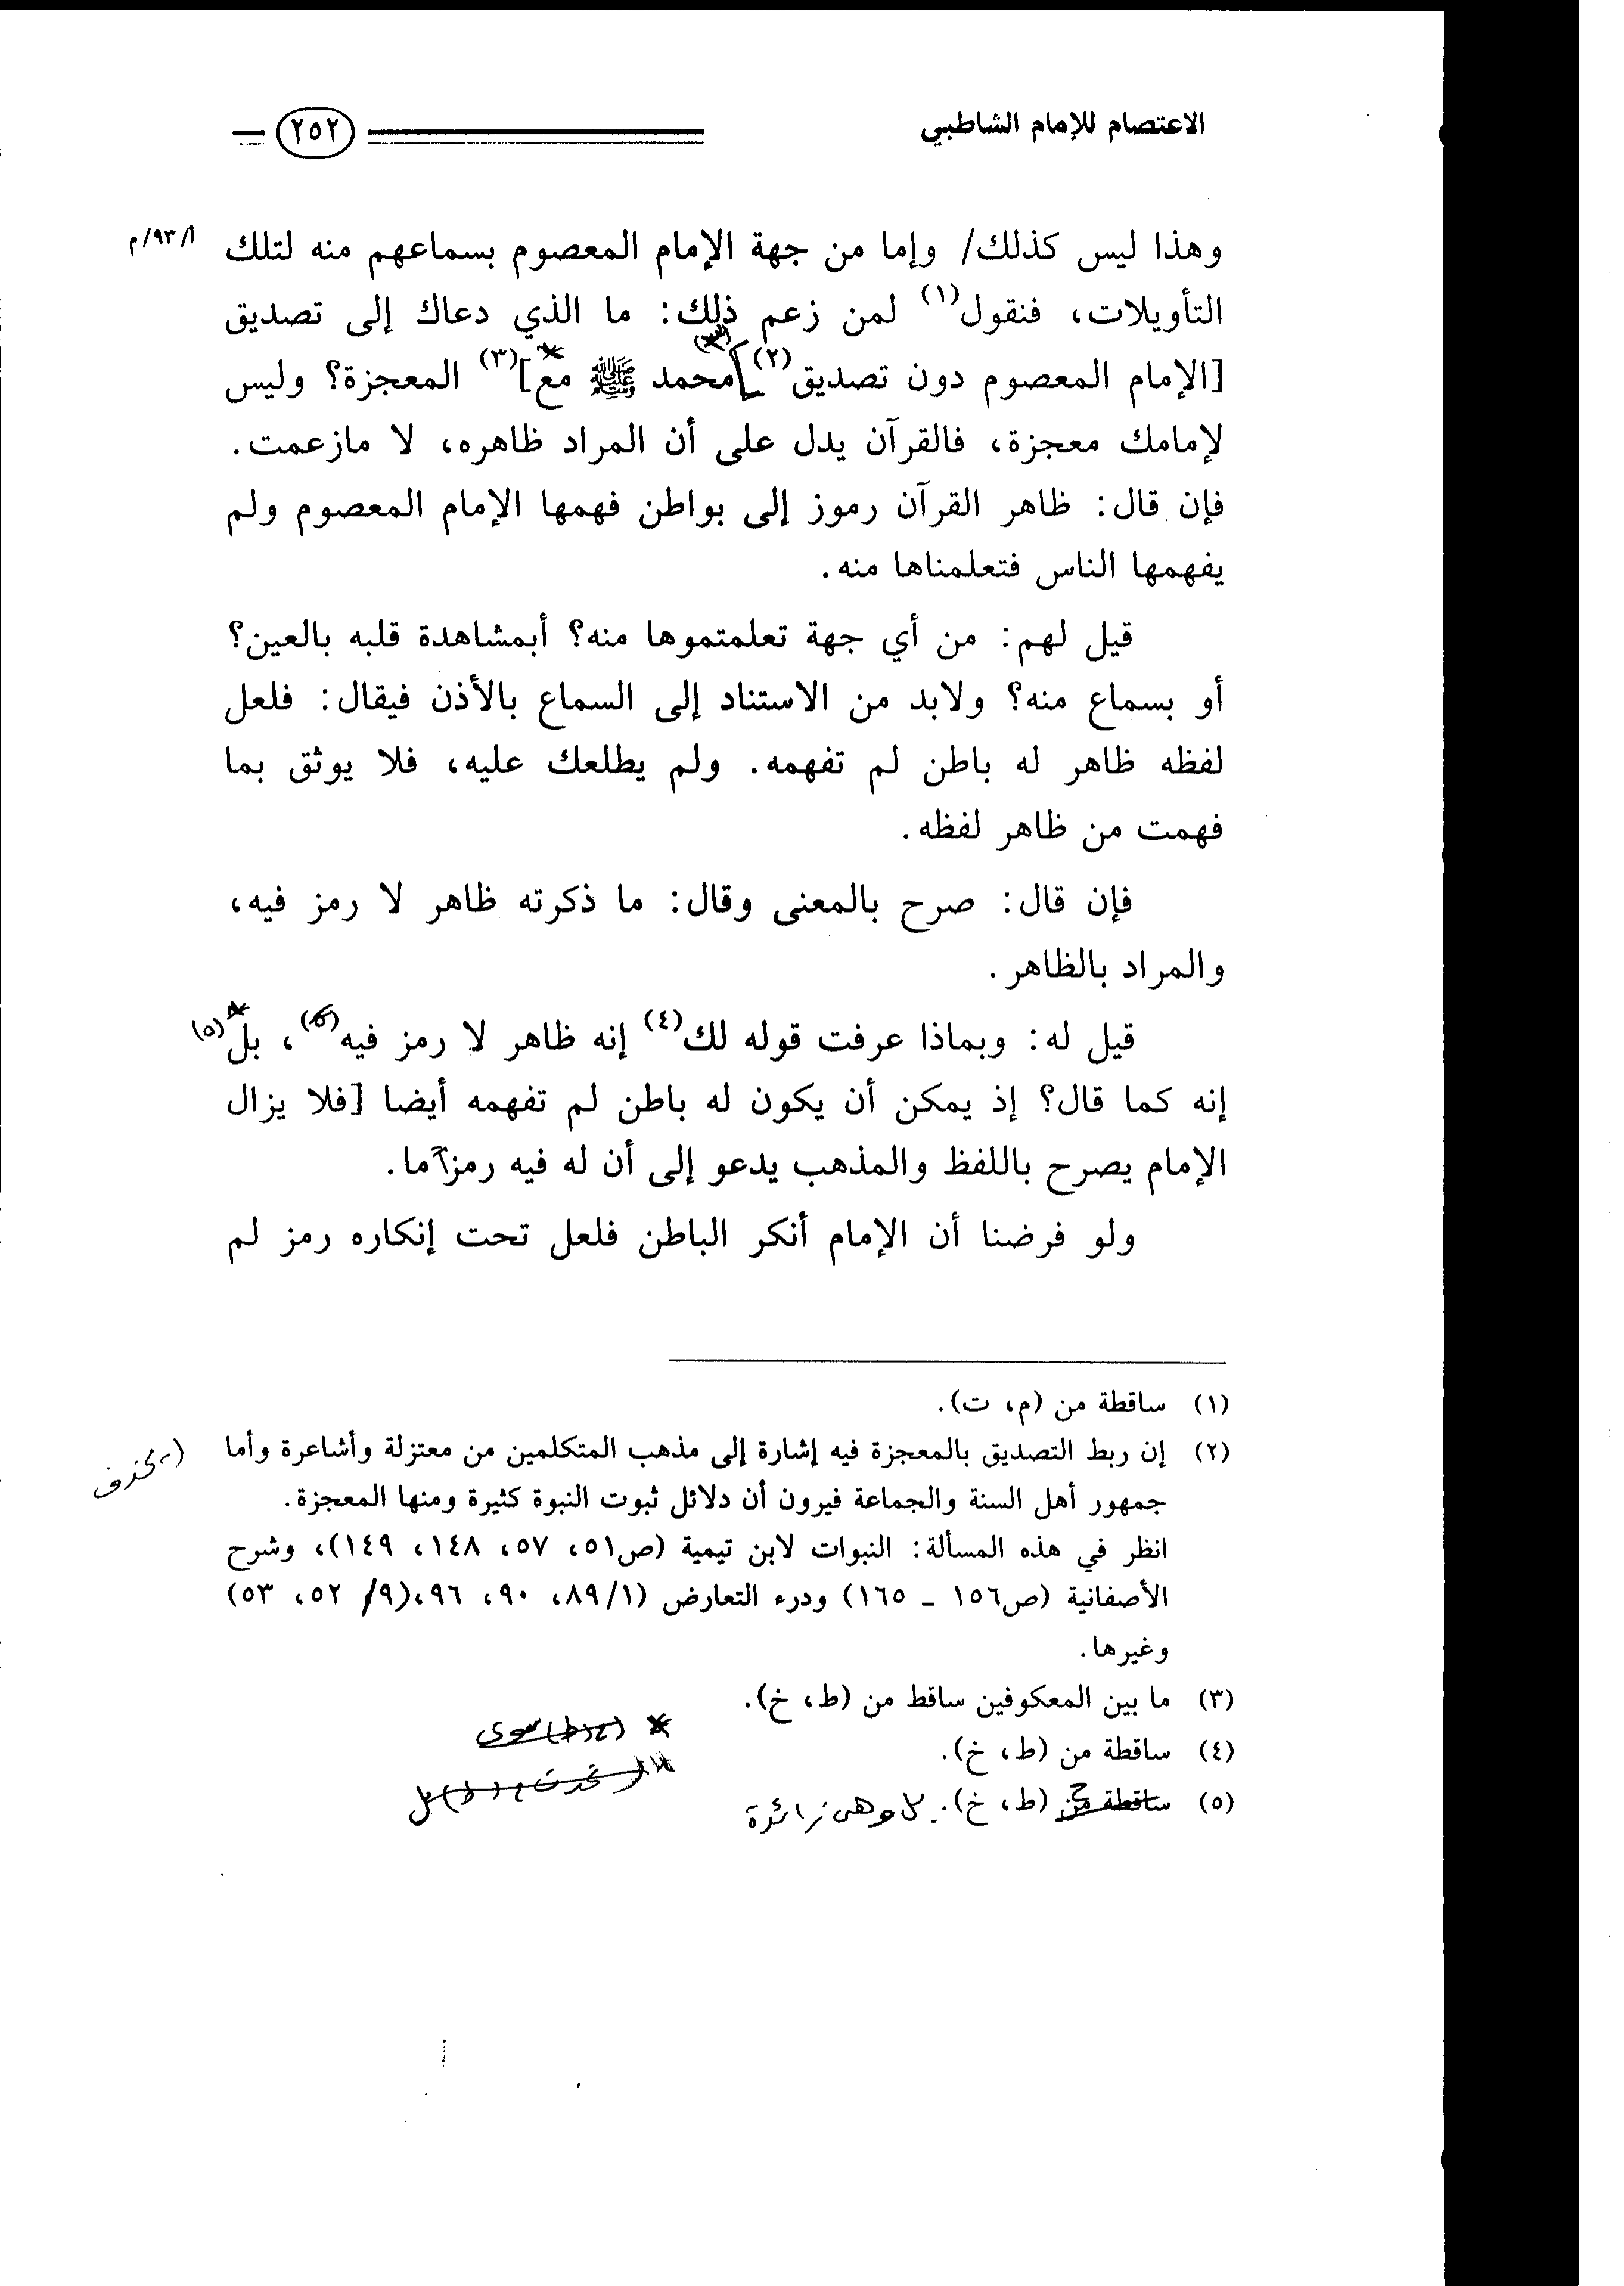 الاعتصام للإمام الشاطبي
٢٥٢
وهذا ليس كذلك/ وإما من جهة الإمام المعصوم بسماعهم منه لتلك
٩٣/أ/م
التأويلات، فنقول(١) لمن زعم ذلك: ما الذي دعاك إلى تصديق
[الإمام المعصوم دون تصديق(٢)] [محمد ﷺ مع](٣) المعجزة؟ وليس
لإمامك معجزة، فالقرآن يدل على أن المراد ظاهره، لا مازعمت.
فإن قال: ظاهر القرآن رموز إلى بواطن فهمها الإمام المعصوم ولم
يفهمها الناس فتعلمناها منه.
قيل لهم: من أي جهة تعلمتموها منه؟ أبمشاهدة قلبه بالعين؟
أو بسماع منه؟ ولابد من الاستناد إلى السماع بالأذن فيقال: فلعل
لفظه ظاهر له باطن لم تفهمه. ولم يطلعك عليه، فلا يوثق بما
فهمت من ظاهر لفظه.
فإن قال: صرح بالمعنى وقال: ما ذكرته ظاهر لا رمز فيه،
والمراد بالظاهر.
قيل له: وبماذا عرفت قوله لك(٤) إنه ظاهر لا رمز فيه(٥)، بل(٥)
إنه كما قال؟ إذ يمكن أن يكون له باطن لم تفهمه أيضا [فلا يزال
الإمام يصرح باللفظ والمذهب يدعو إلى أن له فيه رمزا ما.
ولو فرضنا أن الإمام أنكر الباطن فلعل تحت إنكاره رمز لم
(١) ساقطة من (م، ت).
(٢) إن ربط التصديق بالمعجزة فيه إشارة إلى مذهب المتكلمين من معتزلة وأشاعرة وأما
يحذف
جمهور أهل السنة والجماعة فيرون أن دلائل ثبوت النبوة كثيرة ومنها المعجزة.
انظر في هذه المسألة: النبوات لابن تيمية (ص٥١، ٥٧، ١٤٨، ١٤٩)، وشرح
الأصفانية (ص١٥٦ ـ ١٦٥) ودرء التعارض (٨٩/١، ٩٠، ٩٦،(٩/ ٥٢، ٥٣)
وغيرها.
(٣) ما بين المعكوفين ساقط من (ط، خ).
(٤) ساقطة من (ط، خ).
(٥) ساقطة من (ط، خ). بل وهي زائدة